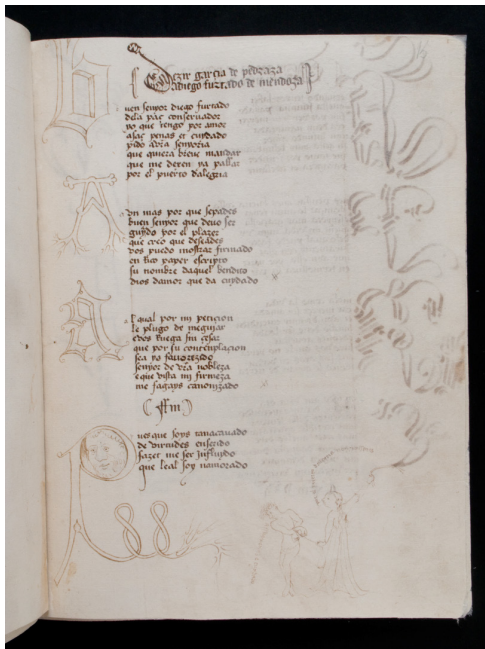 Dezir garcia de pedraza
a diego furtado de mendoza
B
uen senyor diego furtado
dela paç conseruador
yo que tengo por amor
asaç penas et cuydado
pido a vra senyoria
que quiera breue mandar
que me dexen ya passar
por el puerto dalegria
A
vn mas por que sepades
buen senyor que deuo ser
guiado por el plazer
que creo que deseades
vos puedo mostrar firmado
en su paper escripto
su nombre daquel bendito
dios damor que da cuydado
A
l qual por mi peticion
le plugo de
e vos ruega sin
que por su contemplacion
sea yo fauorezido
senyor de vra nobleza
e que vista mi firmeza
me fagays canonizado
ffin
P
ues que soys tan acauado
de virtudes
fazet me ser
que leal soy namorado